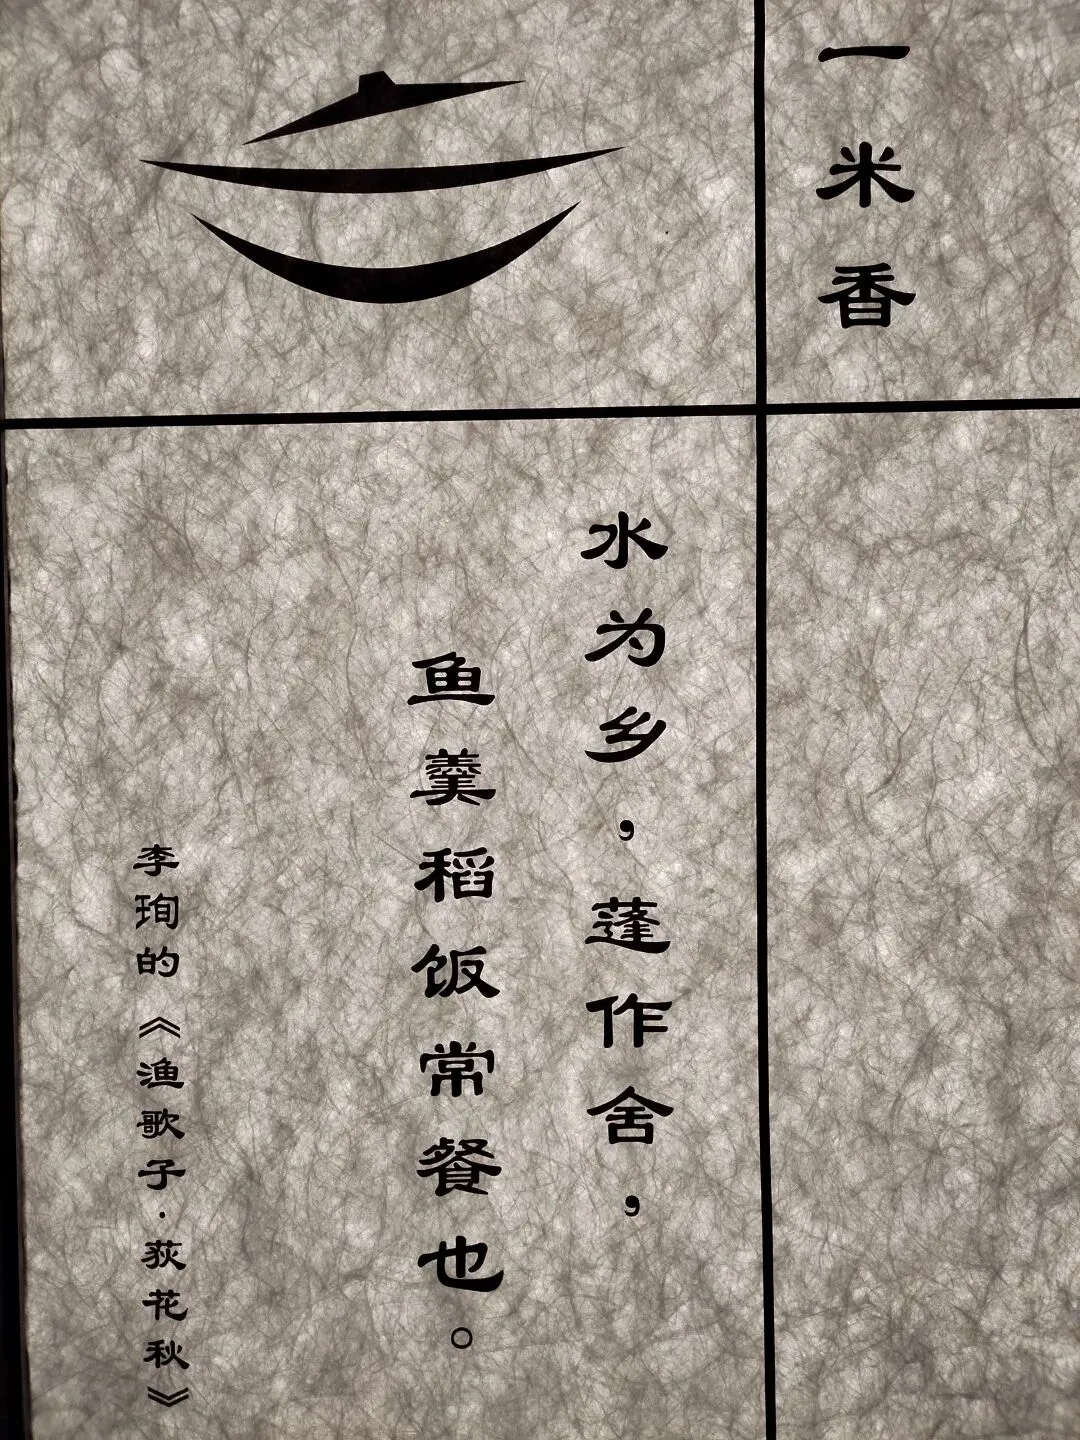 一米香
水为乡，蓬作舍，
鱼羹稻饭常餐也。
李珣的《渔歌子·荻花秋》